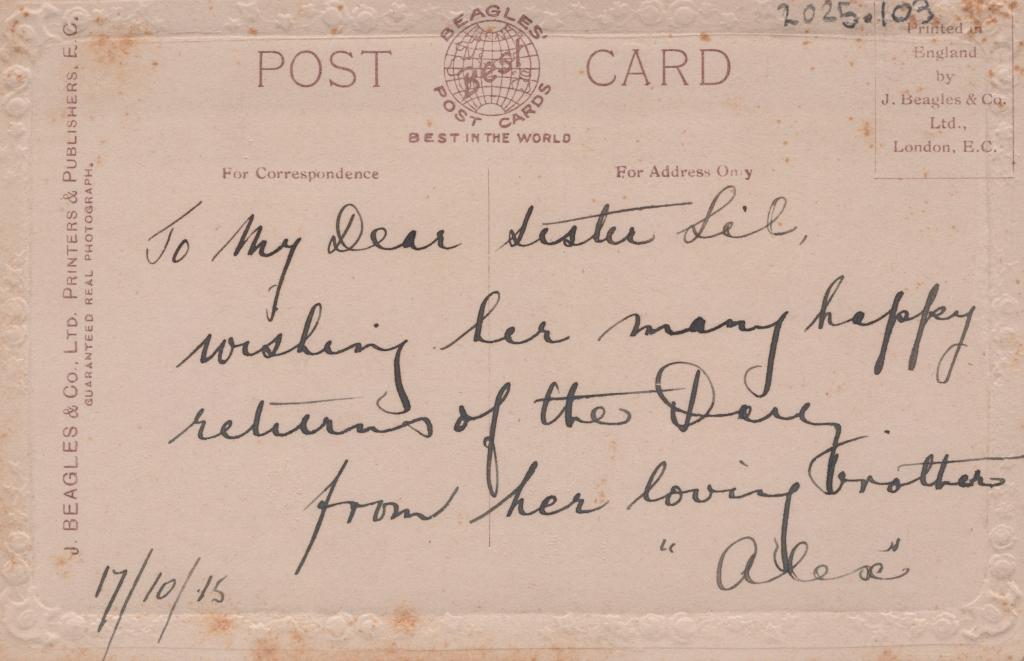 2025.103
POST CARD
BEAGLES'
Best
POST CARDS
BEST IN THE WORLD
Printed in
England
by
J. Beagles & Co.
Ltd.,
London, E.C.
J. BEAGLES & CO., LTD. PRINTERS & PUBLISHERS, E.C.
GUARANTEED REAL PHOTOGRAPH.
For Correspondence
For Address Only
To My Dear sister Lil,
wishing her many happy
returns of the Day.
from her loving brother
"Alex"
17/10/15